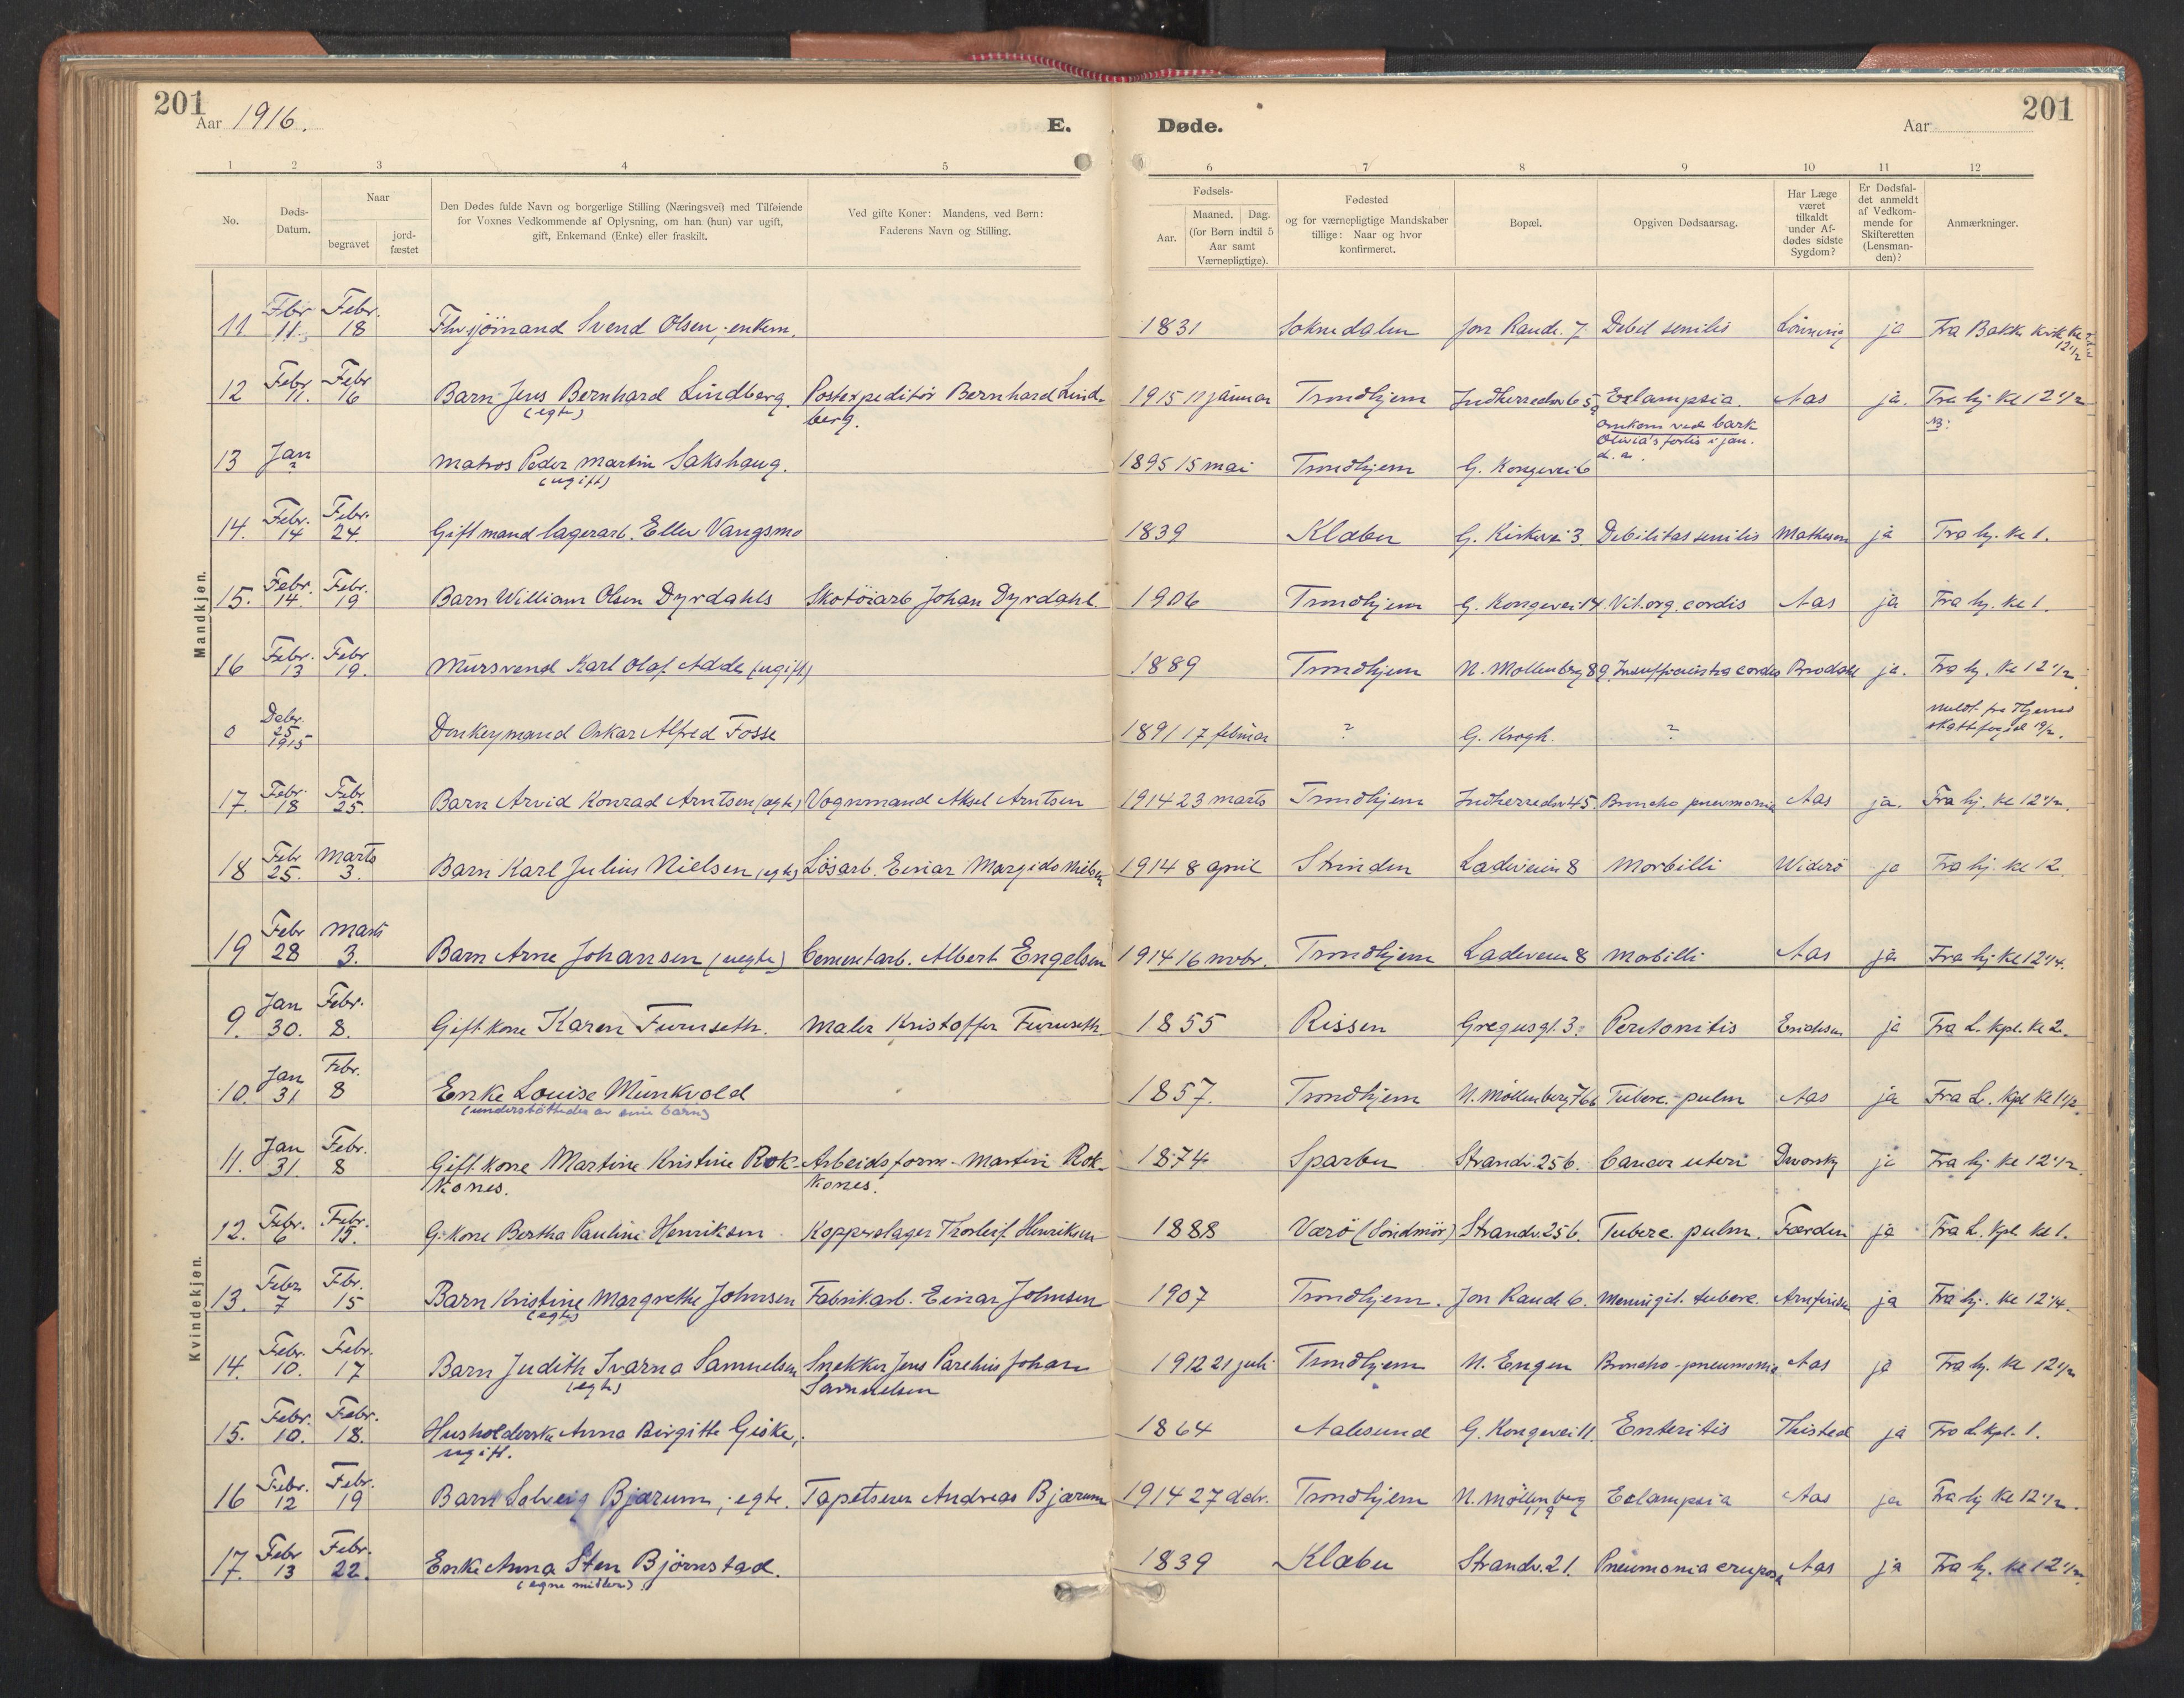 201
Aar 1916.
E.
Døde.
Aar
201
1 2 3 4 5 6 7 8 9 10 11 12
No.
Døds-Datum.
Naar
begravet
jord-fæstet
Den Dødes fulde Navn og borgerlige Stilling (Næringsvei) med Tilføiende
for Voxnes Vedkommende af Oplysning, om han (hun) var ugift,
gift, Enkemand (Enke) eller fraskilt.
Ved gifte Koner: Mandens, ved Børn:
Faderens Navn og Stilling.
Fødsels-
Aar.
Maaned. Dag.
(for Børn indtil 5
Aar samt
Værnepligtige).
Fødested
og for værnepligtige Mandskaber
tillige: Naar og hvor
konfirmeret.
Bopæl.
Opgiven Dødsaarsag.
Har Læge
været
tilkaldt
under Af-
dødes sidste
Sygdom?
Er Dødsfal-
det anmeldt
af Vedkom-
mende for
Skifteretten
(Lensman-
den)?
Anmærkninger.
Mandkjøn.
11 Fbr 11. Febr. 18 Fhv. sjömand Svend Olsen, enkem. 1831 Soknedalen Jon Raude. 7 Debil senilis Lönning ja Fra Bakke Kirke Kl 12 1/2
12 Febr 11. Febr 16 Barn Jens Bernhard Lindberg. Postexpeditör Bernhard Lind- 1915 11 januar Trondhjem Indherredsv 65a Eclampsia. Aas ja. Fra hj Kl 12 1/2
(egte) berg.
omkom ved bark
Olivia's forlis i jan.
d. a.
NB:
13 Jan ? Matros Peder Martin Sakshaug. 1895 15 mai Trondhjem G. Kongevei 6
(ugift)
14. Febr. 14 Febr. 24. Gift mand lagerarb. Ellev Vangsmo 1839 Klæbu G. Kirkevei 3. Debilitas senilis Matheson ja Fra hj. Kl 1.
15. Febr. 14. Febr. 19 Barn William Olsen Dyrdahls Skotöiarb Johan Dyrdahl. 1906 Trondhjem G. Kongevei 14 Vit. org. cordis Aas ja Fra hj. Kl 1.
16 Febr. 13 Febr 19. Mursvend Karl Olaf Adde (ugift) 1889 Trondhjem N. Mollenberg 89. Insufficientia cordis Brodahl ja. Fra hj. Kl 12 1/2.
0 Debr. 25 1915 Donkeymand Oskar Alfred Fosse 1891 17 februar ? G. Krogh. ? meldt fra Thjems
skattefogd 19/2.
17. Febr. 18 Febr 25. Barn Arvid Konrad Arntsen (egte) Vognmand Aksel Arntsen 1914 23 marts Trondhjem Indherredsv 45. Broncho pneumonia Aas ja. Fra hj. Kl 12 1/2.
18 Febr 25. Marts 3. Barn Karl Julius Nielsen (egte) Lösarb. Einar Margido Nielsen 1914 8 april Strinden Ladeveien 8 Morbilli Widerö ja Fra hj. Kl 12.
19 Febr 28 Marts 3. Barn Arne Johansen (uegte) Cementarb. Albert Engelsen 1914 16 novbr. Trondhjem Ladeveien 8 Morbilli Aas ja Fra hj Kl 12 1/4.
Kvindekjøn.
9. Jan 30. Febr. 8. Gift kone Karen Furuseth. Maler Kristoffer Furuseth. 1855 Rissen Gregusgt. 3. Peritonitis Erichsen ja Fra L. Kpl. Kl 2.
10. Jan 31 Febr. 8 Enke Louise Munkvold 1857. Trondhjem N. Möllenberg 76b Tuberc. pulm Aas ja Fra L. Kpl Kl 1 1/2.
(understöttedes av sine barn)
11. Jan 31. Febr. 8 Gift kone Martine Kristine Rok- Arbeidsform. Martin Rok- 1874 Sparbu Strandv. 25b. Cancer uteri Dworsky ja Fra hj Kl 12 1/2.
kones. kones.
12. Febr. 6 Febr. 15. G. kone Bertha Pauline Henriksen. Kopperslager Thorleif Henriksen 1888 Værö (Söndmör) Strandv. 25b. Tuberc. pulm. Færden ja Fra L. Kpl Kl 1.
13. Febr 7 Fbr. 15 Barn Kristine Margrethe Johnsen Fabrikarb. Einar Johnsen 1907 Trondhjem. Jon Raude 6. Meningit. tuberc. ja Fra hj. Kl 12 1/4.
(egte)
14. Febr. 10. Febr. 17 Barn Judith Ivarna Samuelsen Snekker Jens Parelius Johan 1912 21 juli Trondhjem N. Engen Broncho-pneumonia Aas ja Fra hj. Kl 12 1/2
(egte) Samuelsen
15. Febr. 10. Febr. 18. Husholderske Anna Birgitte Giske, 1864 Aalesund G. Kongevei 11. Enteritis Thisted ja Fra L. kpl. 1.
ugift.
16 Febr. 12 Febr. 19 Barn Solveig Bjærum, egte. Tapetserer Andreas Bjærum 1914 27 debr. Trondhjem N. Möllenberg 119 Eclampsia Aas ja Fra hj Kl 12 1/2.
17. Febr 13 Febr. 22. Enke Anna Sten Björnstad. 1839 Klæbu Strandv. 21. Pneumonia cruposa Aas ja Fra hj. Kl 12 1/2.
(egne midler)